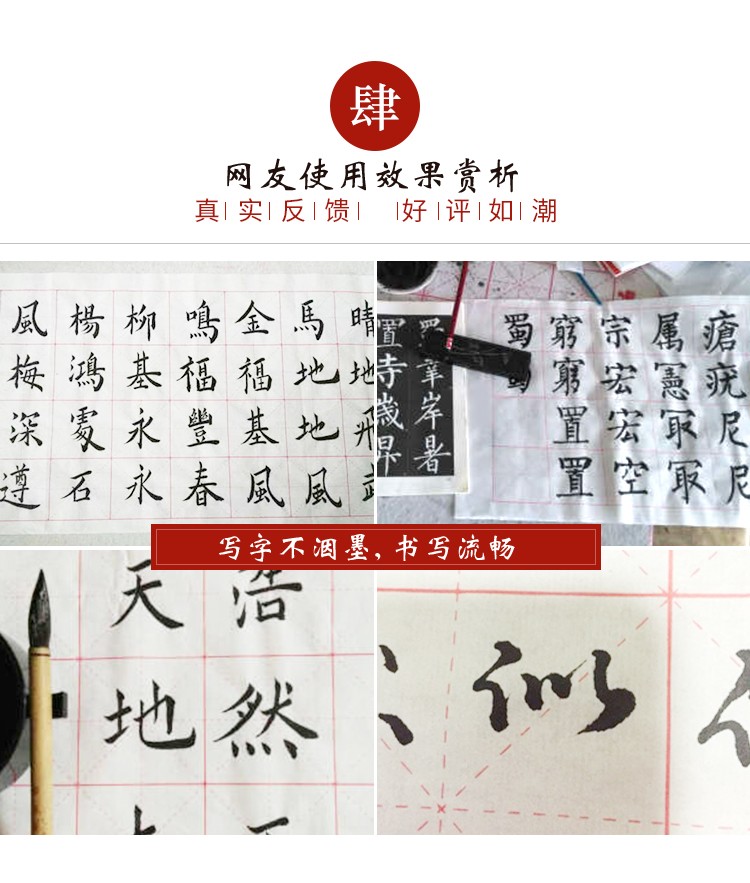 肆
网友使用效果赏析
真实反馈 好评如潮
風楊柳鳴金馬晴
梅鴻基福福地地
深處永豐基地飛
遵石永春風風
蜀窮宗属瘡
蜀窮宏憲疣
置宏取尼
置空冣尼
置
寺羣
歲岸
昇暑
写字不洇墨,书写流畅
天浩
地然
似